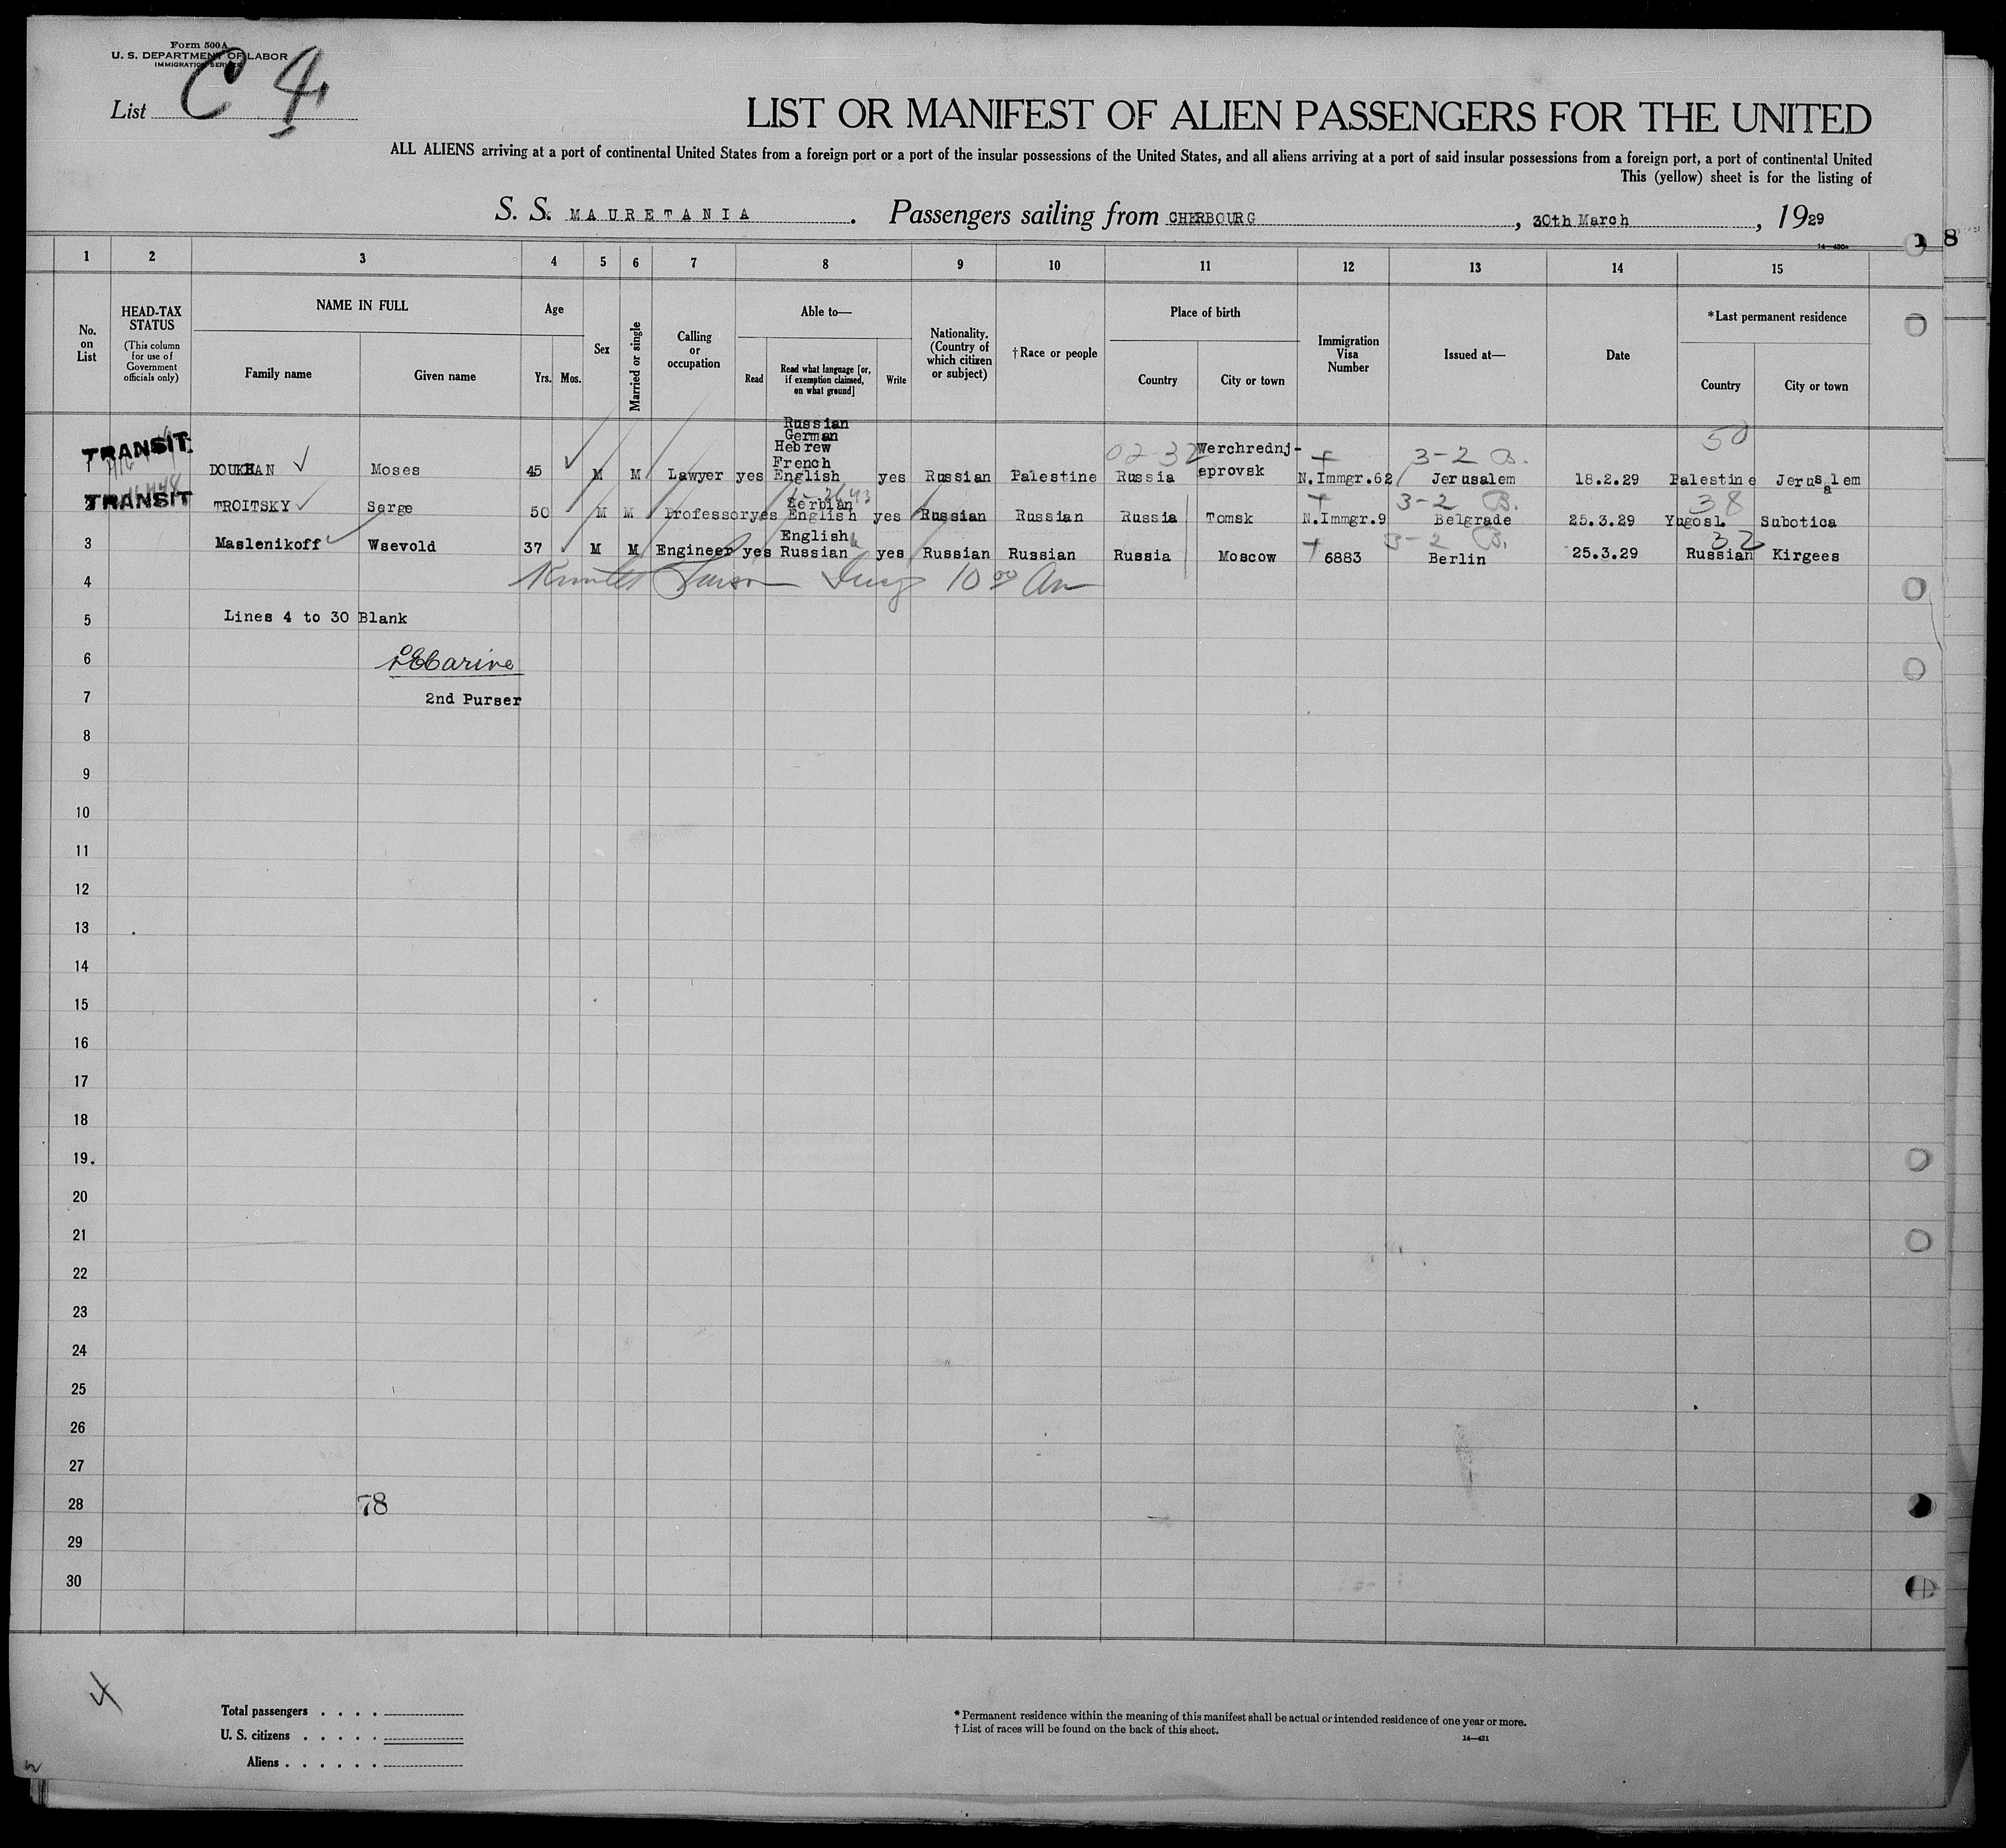 Form 500A
U. S. DEPARTMENT OF LABOR
IMMIGRATION SERVICE
List C 4
LIST OR MANIFEST OF ALIEN PASSENGERS FOR THE UNITED
ALL ALIENS arriving at a port of continental United States from a foreign port or a port of the insular possessions of the United States, and all aliens arriving at a port of said insular possessions from a foreign port, a port of continental United
This (yellow) sheet is for the listing of
S. S. MAURETANIA. Passengers sailing from CHERBOURG, 30th March, 1929
8
1 2 3 4 5 6 7 8 9 10 11 12 13 14 15
No. on List
HEAD-TAX STATUS (This column for use of Government officials only)
NAME IN FULL
Family name Given name
Age
Yrs. Mos.
Sex
Married or single
Calling or occupation
Able to—
Read
Read what language [or, if exemption claimed, on what ground]
Write
Nationality. (Country of which citizen or subject)
†Race or people
Place of birth
Country City or town
Immigration Visa Number
Issued at—
Date
*Last permanent residence
Country City or town
TRANSIT DOUKHAN Moses 45 M M Lawyer yes Russian German Hebrew French English yes Russian Palestine 02-32 Russia Werchrednj-eprovsk N.Immgr.62 3-2 B. Jerusalem 18.2.29 50 Palestine Jerusalem
TRANSIT TROITSKY Serge 50 M M Professor yes Serbian English yes Russian Russian Russia Tomsk N.Immgr.9 3-2 B. Belgrade 25.3.29 38 Yugosl. Subotica
3 Maslenikoff Wsevold 37 M M Engineer yes English Russian yes Russian Russian Russia Moscow 6883 3-2 B. Berlin 25.3.29 32 Russian Kirgees
4 10 00 Am
5 Lines 4 to 30 Blank
6
7 2nd Purser
8
9
10
11
12
13
14
15
16
17
18
19.
20
21
22
23
24
25
26
27
28 78
29
30
Total passengers . . . .
U. S. citizens . . . . .
Aliens . . . . . .
* Permanent residence within the meaning of this manifest shall be actual or intended residence of one year or more.
† List of races will be found on the back of this sheet.
14—431